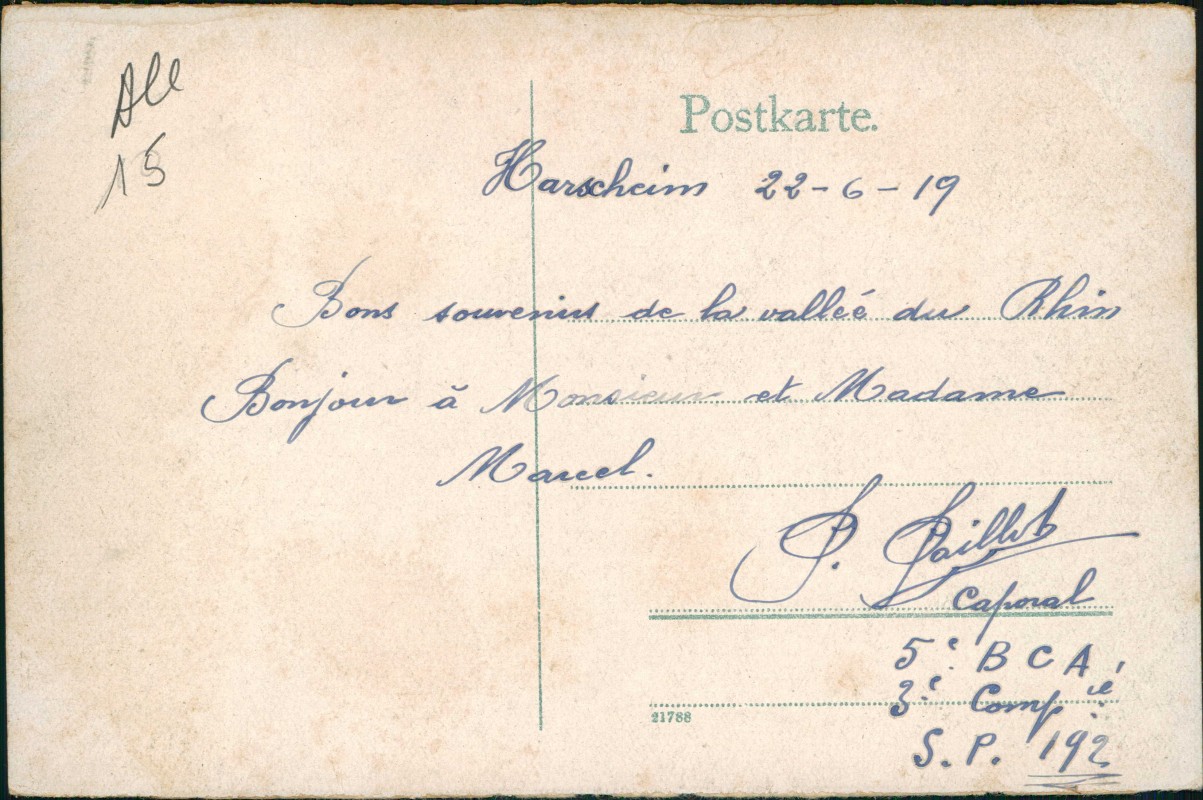 All
15
Postkarte.
Harscheim 22-6-19
Bons souvenirs de la vallée du Rhin
Bonjour à Monsieur et Madame
Marcel.
P. Paillet
Caporal
5e. B C A,
3e. Compie.
S.P. 192
21788